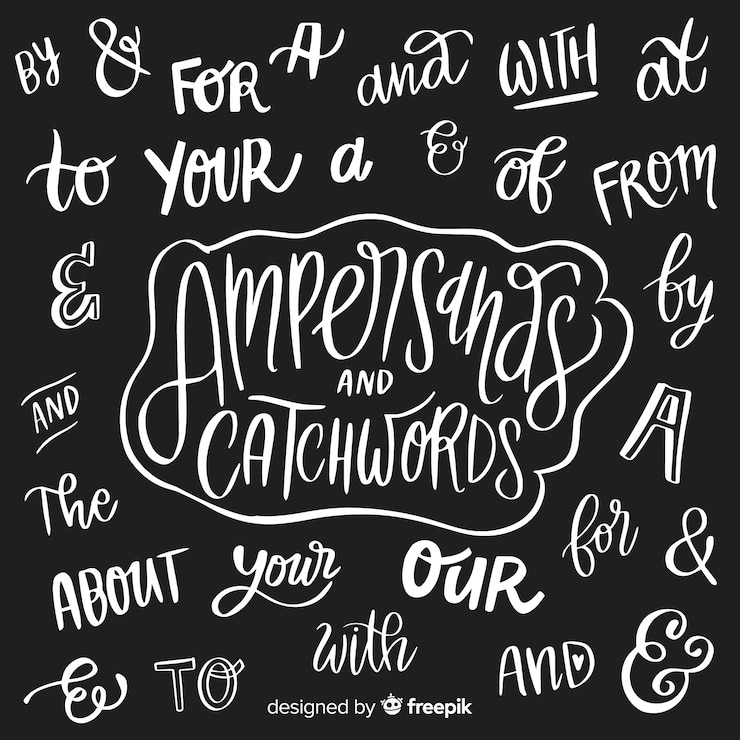 BY & FOR A and WITH at
to YOUR a & of FROM
& by
AMPERSANDS
AND
CATCHWORDS
AND A
The for &
ABOUT your OUR
& TO with AND &
designed by freepik